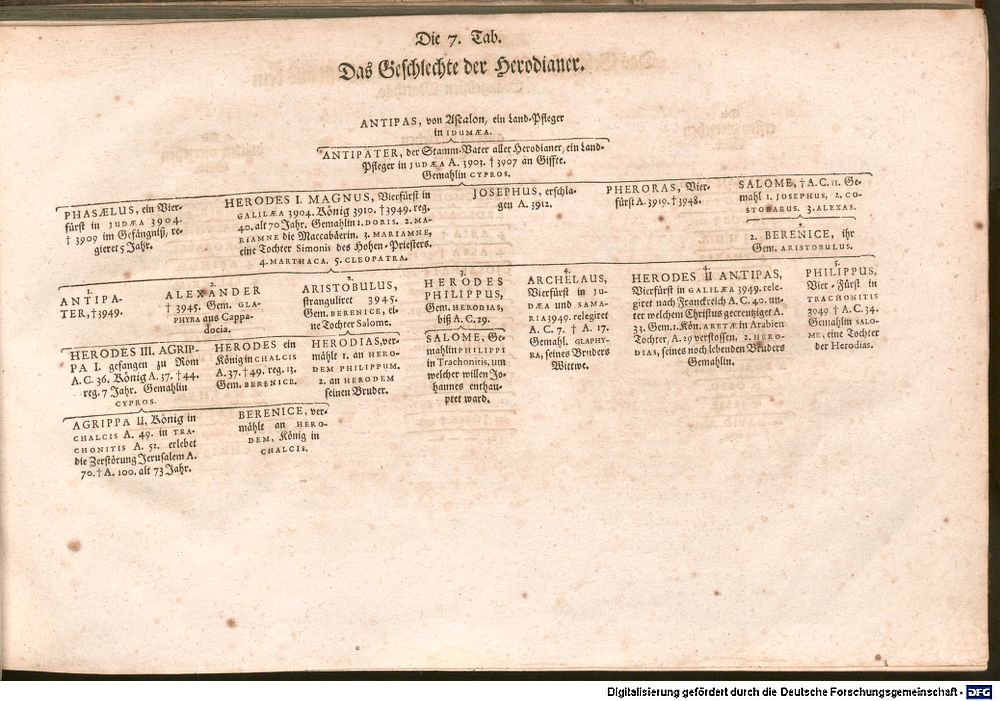 Die 7. Tab.
Das Geschlechte der Herodianer.
ANTIPAS, von Ascalon, ein Land-Pfleger
in IDUMÆA.
ANTIPATER, der Stamm-Vater aller Herodianer, ein Land-
Pfleger in JUDÆA A. 3903. † 3907 an Giffte.
Gemahlin CYPROS.
PHASÆLUS, ein Vier-
fürst in JUDÆA 3904.
† 3909 im Gefängniß, re-
gieret 5 Jahr.
HERODES I. MAGNUS, Vierfürst in
GALILÆA 3904. König 3910. †3949. reg.
40. alt 70 Jahr. Gemahlin 1. DORIS. 2. MA-
RIAMNE die Maccabäerin. 3. MARIAMNE,
eine Tochter Simonis des Hohen-Priesters.
4. MARTHACA. 5. CLEOPATRA.
JOSEPHUS, erschla-
gen A. 3912.
PHERORAS, Vier-
fürst A. 3919. † 3948.
SALOME, † A.C. 11. Ge-
mahl 1. JOSEPHUS, 2. CO-
STOBARUS. 3. ALEXAS.
2.
2. BERENICE, ihr
Gem. ARISTOBULUS.
1.
ANTIPA-
TER, †3949.
2.
ALEXANDER
† 3945. Gem. GLA-
PHYRA aus Cappa-
docia.
2.
ARISTOBULUS,
stranguliret 3945.
Gem. BERENICE, ei-
ne Tochter Salome.
3.
HERODES
PHILIPPUS,
Gem. HERODIAS,
biß A.C. 29.
4.
ARCHELAUS,
Vierfürst in JU-
DÆA und SAMA-
RIA 3949. relegiret
A.C. 7. † A. 17.
Gemahl. GLAPHY-
RA, seines Bruders
Wittwe.
4.
HERODES II ANTIPAS,
Vierfürst in GALILÆA 3949. rele-
giret nach Franckreich A.C. 40. un-
ter welchem Christus gecreutziget A.
33. Gem. 1. Kön. ARETÆ in Arabien
Tochter, A. 29 verstossen. 2. HERO-
DIAS, seines noch lebenden Bruders
Gemahlin.
5.
PHILIPPUS,
Vier-Fürst in
TRACHONITIS
3949 † A.C. 34.
Gemahlin SALO-
ME, eine Tochter
der Herodias.
HERODES III. AGRIP-
PA I. gefangen zu Rom
A.C. 36. König A. 37. †44.
reg. 7 Jahr. Gemahlin
CYPROS.
HERODES ein
König in CHALCIS
A. 37. †49. reg. 13.
Gem. BERENICE.
HERODIAS, ver-
mähle 1. an HERO-
DEM PHILIPPUM.
2. an HERODEM
seinen Bruder.
SALOME, Ge-
mahlin PHILIPPI
in Trachonitis, um
welcher willen Jo-
hannes enthau-
ptet ward.
AGRIPPA II, König in
CHALCIS A. 49. in TRA-
CHONITIS A. 52. erlebet
die Zerstörung Jerusalem A.
70. † A. 100. alt 73 Jahr.
BERENICE, ver-
mählt an HERO-
DEM, König in
CHALCIS.
Digitalisierung gefördert durch die Deutsche Forschungsgemeinschaft - DFG